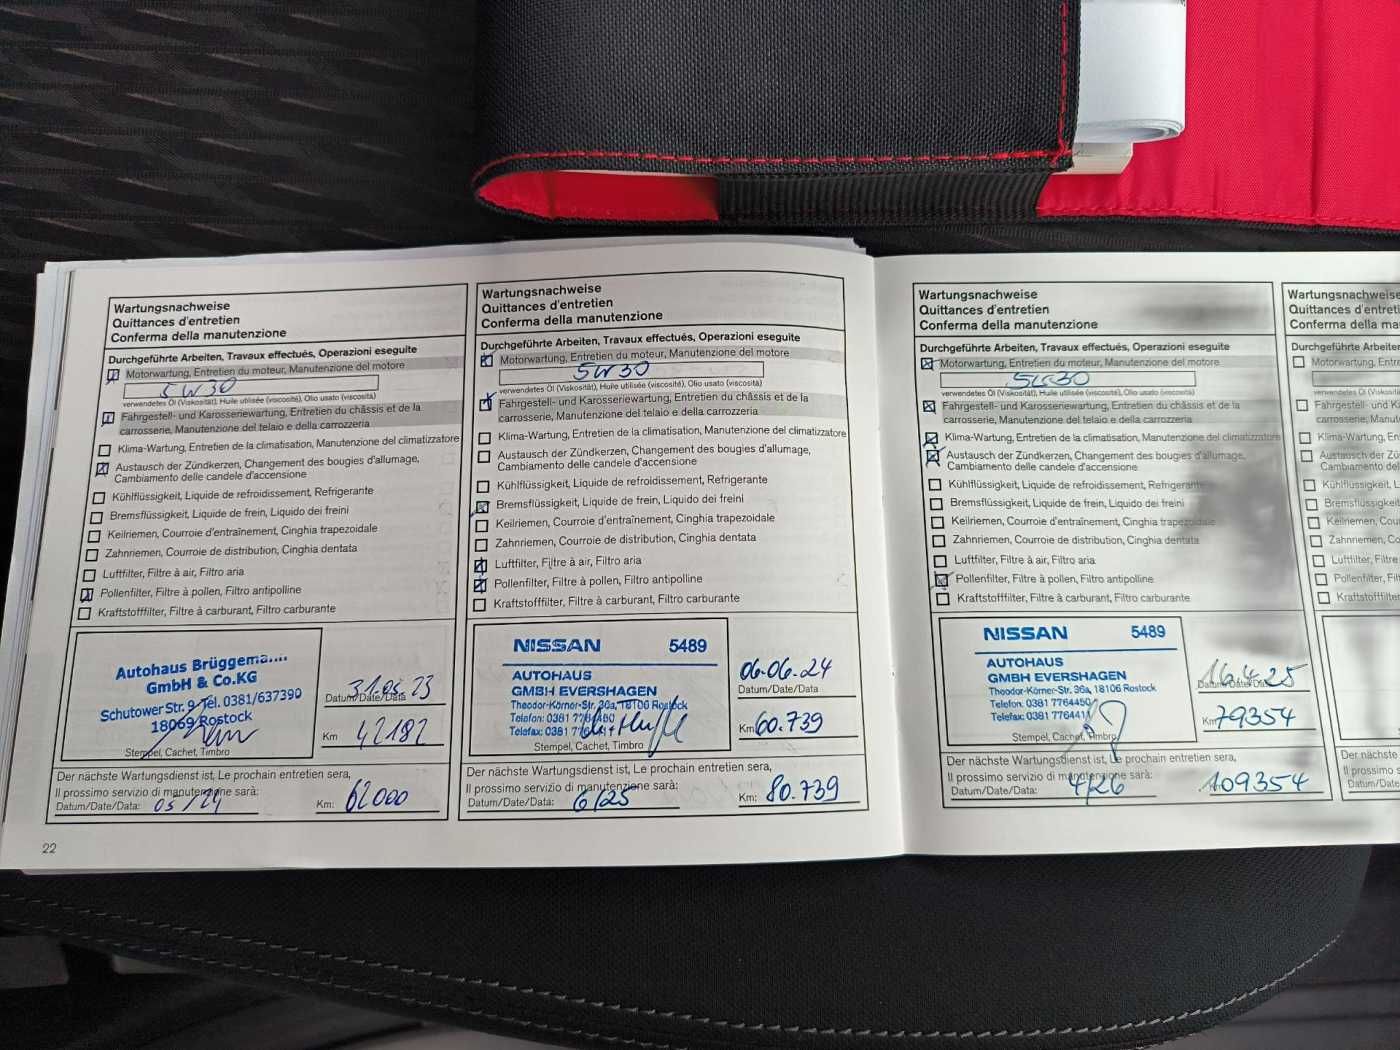 Wartungsnachweise
Quittances d'entretien
Conferma della manutenzione
Durchgeführte Arbeiten, Travaux effectués, Operazioni eseguite
Motorwartung, Entretien du moteur, Manutenzione del motore
5W30
verwendetes Öl (Viskosität), Huile utilisée (viscosité), Olio usato (viscosità)
Fahrgestell- und Karosseriewartung, Entretien du châssis et de la
carrosserie, Manutenzione del telaio e della carrozzeria
Klima-Wartung, Entretien de la climatisation, Manutenzione del climatizzatore
Austausch der Zündkerzen, Changement des bougies d'allumage,
Cambiamento delle candele d'accensione
Kühlflüssigkeit, Liquide de refroidissement, Refrigerante
Bremsflüssigkeit, Liquide de frein, Liquido dei freini
Keilriemen, Courroie d'entraînement, Cinghia trapezoidale
Zahnriemen, Courroie de distribution, Cinghia dentata
Luftfilter, Filtre à air, Filtro aria
Pollenfilter, Filtre à pollen, Filtro antipolline
Kraftstofffilter, Filtre à carburant, Filtro carburante
Autohaus Brüggemann
GmbH & Co.KG
Schutower Str. 9 Tel. 0381/637390
18069 Rostock
Stempel, Cachet, Timbro
31.05.23
Datum/Date/Data
Km 42182
Der nächste Wartungsdienst ist, Le prochain entretien sera,
Il prossimo servizio di manutenzione sarà:
Datum/Date/Data: 05/24 Km: 62000
22
Wartungsnachweise
Quittances d'entretien
Conferma della manutenzione
Durchgeführte Arbeiten, Travaux effectués, Operazioni eseguite
Motorwartung, Entretien du moteur, Manutenzione del motore
5W30
verwendetes Öl (Viskosität), Huile utilisée (viscosité), Olio usato (viscosità)
Fahrgestell- und Karosseriewartung, Entretien du châssis et de la
carrosserie, Manutenzione del telaio e della carrozzeria
Klima-Wartung, Entretien de la climatisation, Manutenzione del climatizzatore
Austausch der Zündkerzen, Changement des bougies d'allumage,
Cambiamento delle candele d'accensione
Kühlflüssigkeit, Liquide de refroidissement, Refrigerante
Bremsflüssigkeit, Liquide de frein, Liquido dei freini
Keilriemen, Courroie d'entraînement, Cinghia trapezoidale
Zahnriemen, Courroie de distribution, Cinghia dentata
Luftfilter, Filtre à air, Filtro aria
Pollenfilter, Filtre à pollen, Filtro antipolline
Kraftstofffilter, Filtre à carburant, Filtro carburante
NISSAN 5489
AUTOHAUS
GMBH EVERSHAGEN
Theodor-Körner-Str. 36a, 18106 Rostock
Telefon: 0381 7764450
Telefax: 0381 7764411
Stempel, Cachet, Timbro
06.06.24
Datum/Date/Data
Km: 60.739
Der nächste Wartungsdienst ist, Le prochain entretien sera,
Il prossimo servizio di manutenzione sarà:
Datum/Date/Data: 6/25 Km: 80.739
Wartungsnachweise
Quittances d'entretien
Conferma della manutenzione
Durchgeführte Arbeiten, Travaux effectués, Operazioni eseguite
Motorwartung, Entretien du moteur, Manutenzione del motore
5W30
verwendetes Öl (Viskosität), Huile utilisée (viscosité), Olio usato (viscosità)
Fahrgestell- und Karosseriewartung, Entretien du châssis et de la
carrosserie, Manutenzione del telaio e della carrozzeria
Klima-Wartung, Entretien de la climatisation, Manutenzione del climatizzatore
Austausch der Zündkerzen, Changement des bougies d'allumage,
Cambiamento delle candele d'accensione
Kühlflüssigkeit, Liquide de refroidissement, Refrigerante
Bremsflüssigkeit, Liquide de frein, Liquido dei freini
Keilriemen, Courroie d'entraînement, Cinghia trapezoidale
Zahnriemen, Courroie de distribution, Cinghia dentata
Luftfilter, Filtre à air, Filtro aria
Pollenfilter, Filtre à pollen, Filtro antipolline
Kraftstofffilter, Filtre à carburant, Filtro carburante
NISSAN 5489
AUTOHAUS
GMBH EVERSHAGEN
Theodor-Körner-Str. 36a, 18106 Rostock
Telefon: 0381 7764450
Telefax: 0381 7764411
Stempel, Cachet, Timbro
16.4.25
Datum/Date/Data
Km 79354
Der nächste Wartungsdienst ist, Le prochain entretien sera,
Il prossimo servizio di manutenzione sarà:
Datum/Date/Data: 4/26 109354
Wartungsnachweise
Quittances d'entreti
Conferma della manu
Durchgeführte Arbeiten
Motorwartung, Entreti
Fahrgestell- und Karosse
carrosserie, Manutenz
Klima-Wartung, Entre
Austausch der Zünd
Cambiamento delle
Kühlflüssigkeit, Liqui
Bremsflüssigkeit, Li
Keilriemen, Courroie
Zahnriemen, Courro
Luftfilter, Filtre à
Pollenfilter, Filtre à
Kraftstofffilter, Filtr
Der nächste
Il prossimo s
Datum/Data